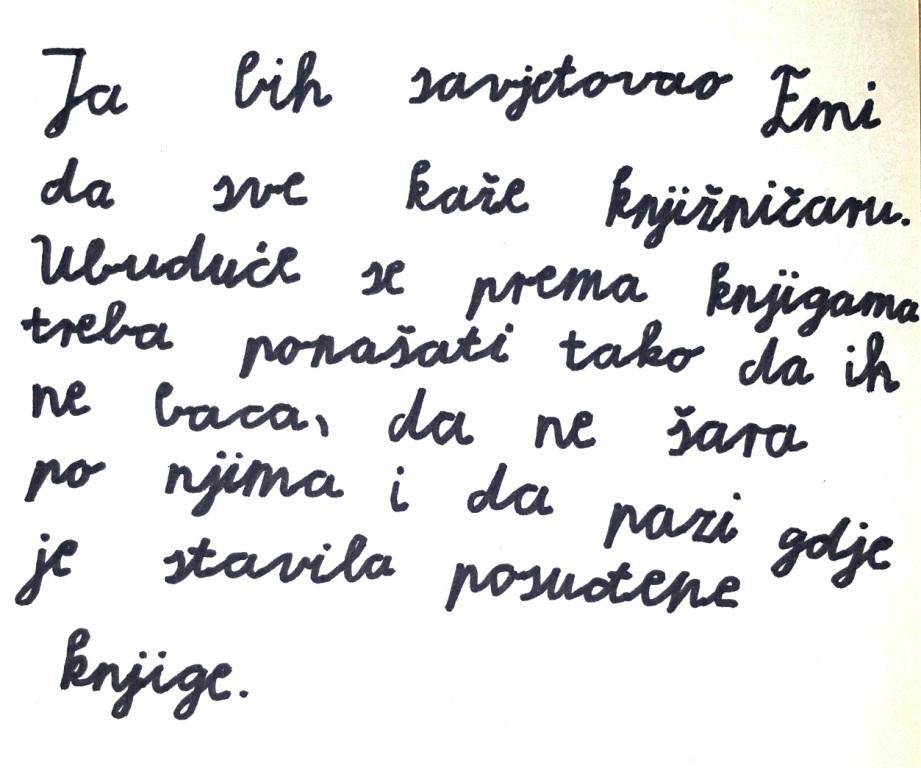 Ja bih savjetovao Emi
da sve kaže knjižničaru.
Ubuduće se prema knjigama
treba ponašati tako da ih
ne baca, da ne šara
po njima i da pazi gdje
je stavila posuđene
knjige.